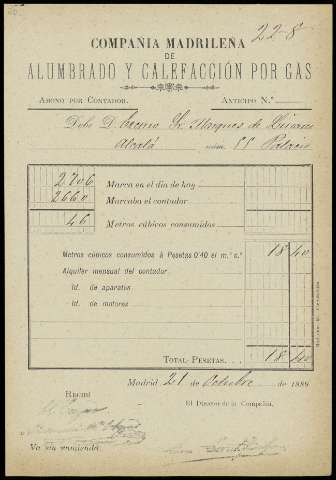 22-8
COMPAÑIA MADRILEÑA
DE
ALUMBRADO Y CALEFACCIÓN POR GAS
ABONO POR CONTADOR. ANTICIPO N.º
Debe D. Excmo Sr. Marques de Linares
Alcalá núm. 55 Palacio
2706 Marca en el día de hoy
2660 Marcaba el contador
46 Metros cúbicos consumidos
Metros cúbicos consumidos á Pesetas 0'40 el m.³ c.º 18 40
Alquiler mensual del contador
Id. de aparatos
Id. de motores
TOTAL PESETAS. 18 40
Madrid 21 de Octubre de 1889
RECIBÍ
El Director de la Compañía,
No va enmienda